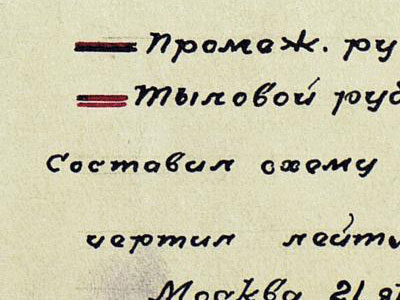 Промеж. ру
Тыловой руб
Составил схему
чертил лейт
Москва 21 я